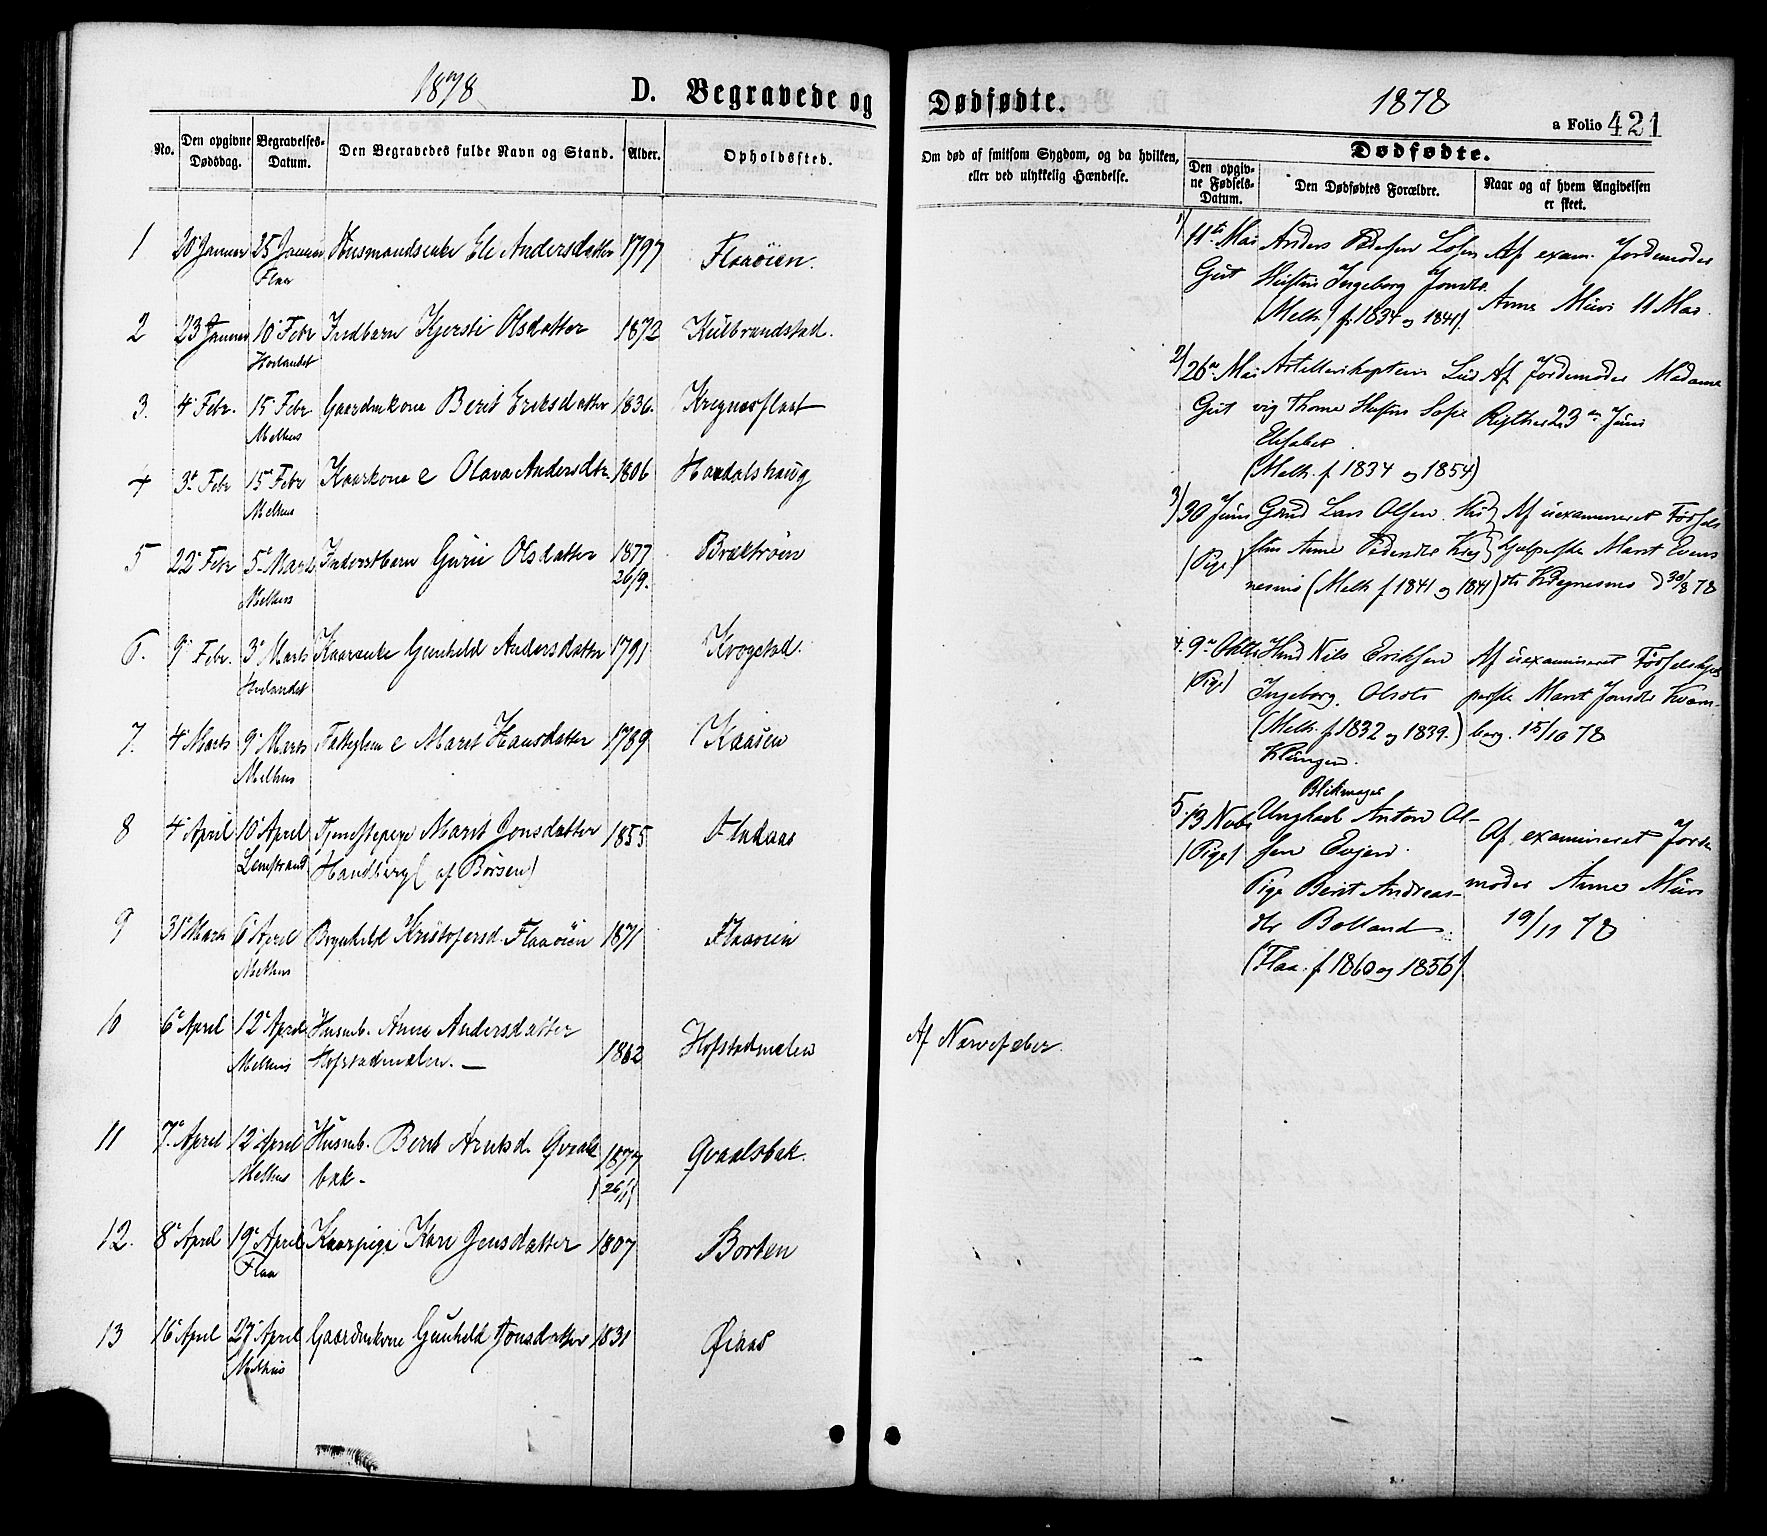 1878 D. Begravede og
No. Den opgivne Dødsdag. Begravelses-Datum. Den Begravedes fulde Navn og Stand. Alder. Opholdssted.
1 20 Januar 25 Januar Husmandsenke Eli Andersdatter 1797 Flaaöien.
Flaa
2 23 Januar 10 Febr Indbarn Kjersti Olsdatter 1872 Kulbrandstad.
Horlandet
3. 4 Febr. 15 Febr Gaardmkone Berit Eriksdatter 1836. Kregnesflaat
Melhus
4 3 Febr 15 Febr Kaarkone e Olava Andersdtr. 1806
Melhus
5 22 Febr 5 Marts Inderstbarn Guru Olsdatter 1877
Melhus 26/9.
6. 9 Febr. 3 Marts Kaarenke Gunhild Andersdatter 1791 Krogstad.
Horlandet
7. 4 Marts 9 Marts e Marit Hansdatter 1789 Kaasen
Melhus
8 4 April 10 April Tjenestepige Marit Jonsdatter 1855
Handberg (af Börsen)
9 31 Marts 6 April Brynhild Kristofersd. Flaaöien 1871 Flaaöien
Melhus
10 6 April 12 April Husmb. Anne Andersdatter
Melhus Hofstadmælen. — 1862 Hofstadmælen
11 7 April 12 April Husmb. Berit Arntsd. Qvaals
Melhus bak - 1877 Qvaalsbak.
26/11
12. 8 April 19 April Kaarpige Kari Jensdatter 1807 Borten
Flaa
13 16 April 27 April Gaardmkone Gunhild Jonsdatter 1831 Öiaas
Melhus
Dødfødte. 1878
a Folio 421
Om død af smitsom Sygdom, og da hvilken, eller ved ulykkelig Hændelse.
Dødfødte.
Den opgivne Fødsels-Datum. Den Dødfødtes Forældre. Naar og af hvem Angivelsen er skeet.
1) 11te Mai Anders Pedersen Af exam. Jordemoder
Gut Hustru Ingeborg Jonsdtr. Anne Muri 11 Mai.
(Melh. f. 1834 og 1841).
2) 26 Mai Artillerikaptein Lud Af Jordemoder Madame
Gut vig Thome Hustru Sofie 23 Juni
Elisabet
(Melh. f 1834 og 1854)
3) 30 Juni Gmd Lars Olsen. Hu Af uexamineret Födsels
(Pige) stru Anne Pedersdtr Kreg hjælperske Marit Evens
nesmo (Melh f 1841 og 1841) dtr Kregnesmo d 30/8 78
4. 9 Oktbr Hmd Nils Eriksen Af uexamineret Födselshjæl
(Pige) Ingeborg Olsdtr perske Marit Jonsdtr Kvam-
(Melh. f. 1832 og 1839.) berg. 15/10 78
Klungen.
Blikmager
5. 13 Novbr Ungkarl Anton Ol-
(Pige) sen Evjen. Af examineret Jorde
Pige Berit Andreas- moder Anne Muri
dtr Bolland. 19/11 78
(Flaa. f 1860 og 1856)
Af Nervefeber.